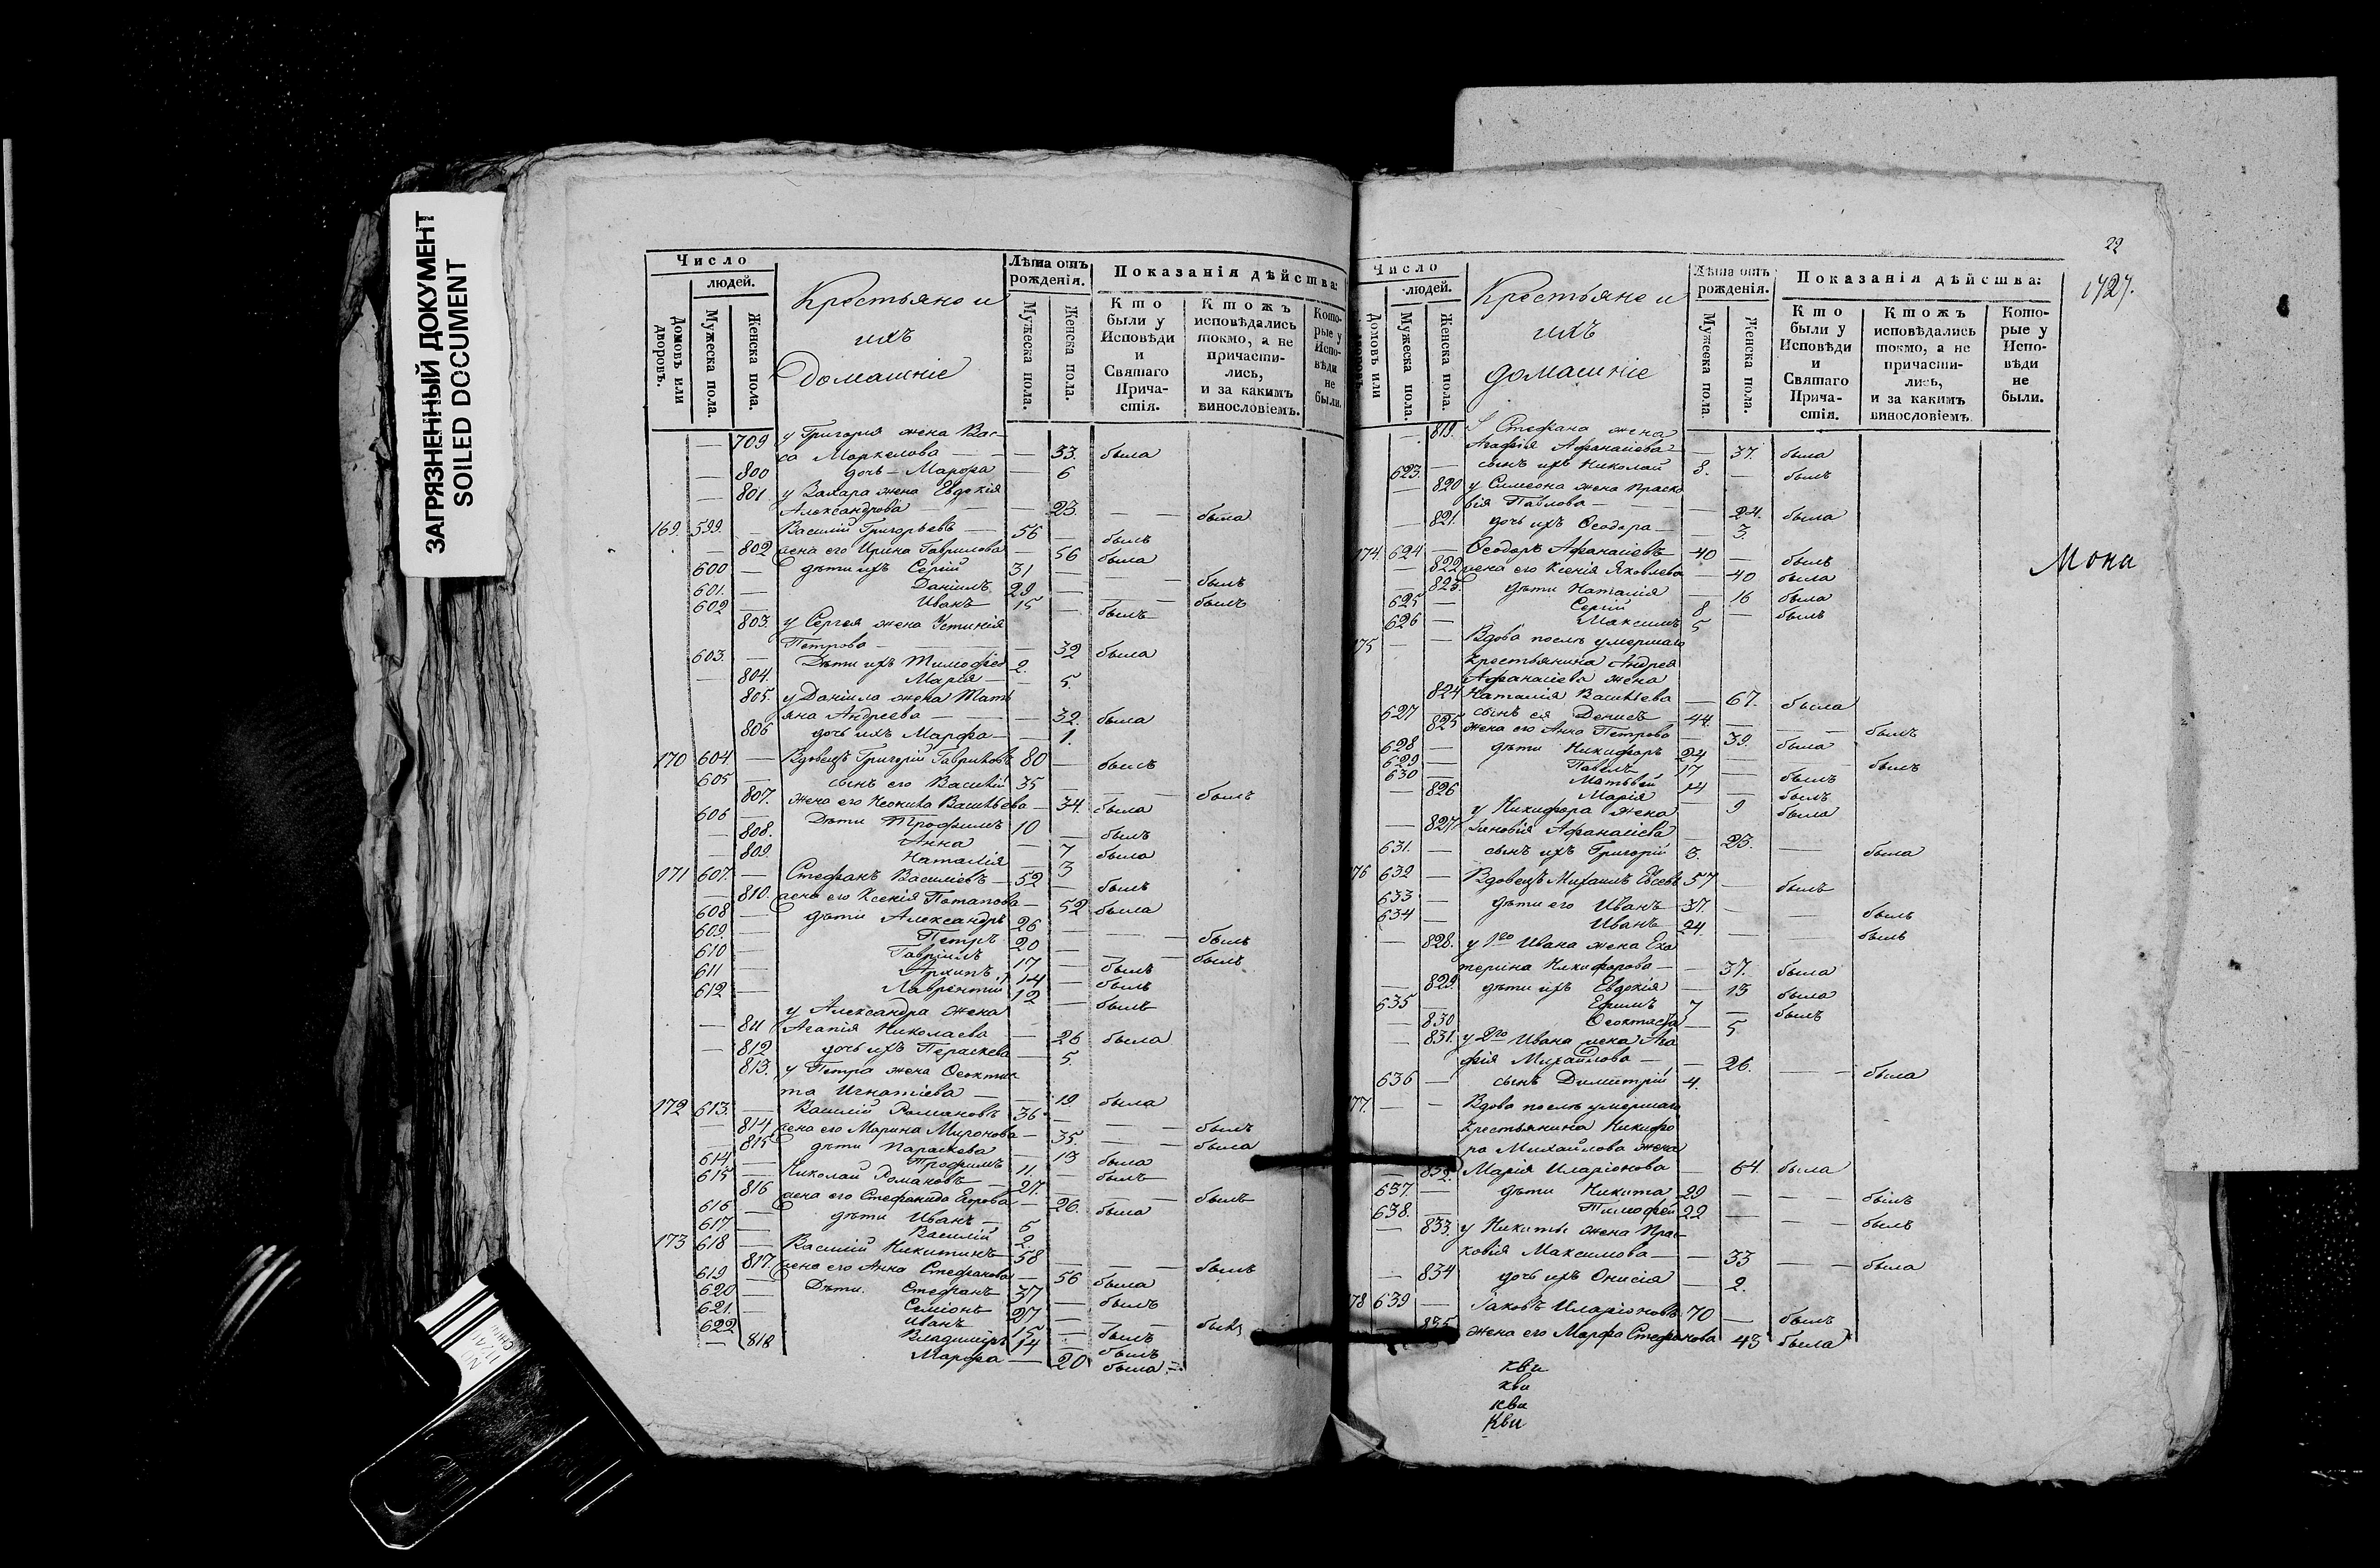 ЗАГРЯЗНЕННЫЙ ДОКУМЕНТ
SOILED DOCUMENT
Число
людей.
Домовъ или дворовъ.
Мужеска пола.
Женска пола.
Крестьяне и
ихъ
Домашніе
Лѣта отъ рожденія.
Мужеска пола.
Женска пола.
Показанія дѣйства:
Кто были у Исповѣди и Святаго Прича-стія.
Ктожъ исповѣдались токмо, а не причасти-лись, и за какимъ винословіемъ.
Кото-рые у Испо-вѣди не были.
— 709 у Григорія жена Вас-
са Маркелова — — 33. была
— 800 дочь — Марфа — 6
— 801. у Захара жена Евдокія
Александрова — — 23. — — была
169. 599. — Василій Григорьевъ — 56 — былъ
— 802 жена его Ирина Гаврилова — 56 была
600 — дѣти ихъ Сергій 31 — — — былъ
601. — Даніилъ 29 — — — былъ
602 — Иванъ 15 — былъ
803. у Сергея жена Устинія
Петрова — — 32 была
603. — Дѣти ихъ Тимофей 2.
— 804. Марія — — 5.
805. у Даніила жена Тать
яна Андреева — — 32. была
806 дочь ихъ Марфа — — 1.
170 604 — Вдовецъ Григорій Гавриловъ 80 — былъ
605 — сынъ его Василій 35 — — былъ
807. жена его Неонила Васильева — 34. была
606 — Дѣти Трофимъ 10 — былъ
— 808. Анна — 7 была
— 809. Наталія — 3
171 607. — Стефанъ Василіевъ — 52 — былъ
— 810. жена его Ксенія Потапова — 52 была
608 — дѣти Александръ 26 — — — былъ
609. — Петръ 20 — — — былъ
610 — Гавріилъ 17 — былъ
611 — Архипъ 14 — былъ
612 — Лаврентій 12 — былъ
у Александра жена
— 811 Агапія Николаева — 26 была
— 812 дочь ихъ Параскева — 5.
813. у Петра жена Ѳеоктис
та Игнатіева — — 19. была
172 613. — Василій Романовъ 36 — — — былъ
— 814 жена его Марина Миронова — 35. — — была
— 815 дѣти Параскева — 13 была
614 — Трофимъ 11. — былъ
615 — Николай Романовъ — 27. — — — былъ
816 жена его Стефанида Егорова — 26. была
616 — дѣти Иванъ — 5
617 — Василій 2.
173 618 — Василій Никитинъ — 58 — — — былъ
817. жена его Анна Стефанова — 56 была
619 — Дѣти. Стефанъ 37 — былъ
620 — Семіонъ 27 — — былъ
621. — Иванъ 15 — былъ
622 — Владиміръ 14 — былъ
— 818 Марфа — 20 была
22
1427.
Число
людей.
Домовъ или дворовъ.
Мужеска пола.
Женска пола.
Крестьяне и
ихъ
домашніе
Лѣта отъ рожденія.
Мужеска пола.
Женска пола.
Показанія дѣйства:
Кто были у Исповѣди и Святаго Прича-стія.
Ктожъ исповѣдались токмо, а не причасти-лись, и за какимъ винословіемъ.
Кото-рые у Испо-вѣди не были.
— 819. У Стефана жена
Агафія Афанасіева — 37. была
623. — сынъ ихъ Николай 8. — былъ
— 820 у Симеона жена Праско
вія Павлова — — 24. была
— 821. дочь ихъ Ѳеодора — — 3.
174. 624 — Ѳеодоръ Афанасіевъ 40 — былъ
— 822 жена его Ксенія Яковлева — 40 была
— 823. дѣти Наталія — 16 была
625 — Сергій 8 — былъ
626 — Максимъ 5
175 — — Вдова послѣ умершаго
крестьянина Андрея
Афанасіева жена
824 Наталія Васильева — 67. была
627 — сынъ ея Денисъ — 44. — — — былъ
825 жена его Анна Петрова — 39. была
628 — дѣти Никифоръ 24 — — былъ
629 — Павелъ 17 — былъ
630 — Матвѣй 14 — былъ
— 826 Марія — 9 была
у Никифора жена
— 827 Зиновія Афанасіева — 23. — была
631. — сынъ ихъ Григорій 3.
176 632 — Вдовецъ Михаилъ Евсѣевъ 57 — былъ
633 — дѣти его Иванъ 37. — — былъ
634 — Иванъ 24. — — былъ
— 828. у 1го Ивана жена Ека
терина Никифорова — — 37. была
— 829. дѣти ихъ Евдокія — 13 была
635 — Ефимъ 7 — былъ
— 830 Ѳеоктиста — 5
— 831. у 2го Ивана жена Ага
фія Михайлова — — 26. — — была
636 — сынъ Димитрій 4.
177. — — Вдова послѣ умершаго
крестьянина Никифо
ра Михайлова жена
832. Марія Иларіонова — 64. была
637. — дѣти Никита 29 — — — былъ
638. — Тимофей 22 — — — былъ
— 833. у Никиты жена Прас
ковія Максимова — — 33 — — была
— 834 дочь ихъ Онисія — 2.
178 639 — Іаковъ Иларіоновъ 70 — былъ
835. жена его Марфа Стефанова 43 была
Мока
кви
кви
кви
Кви